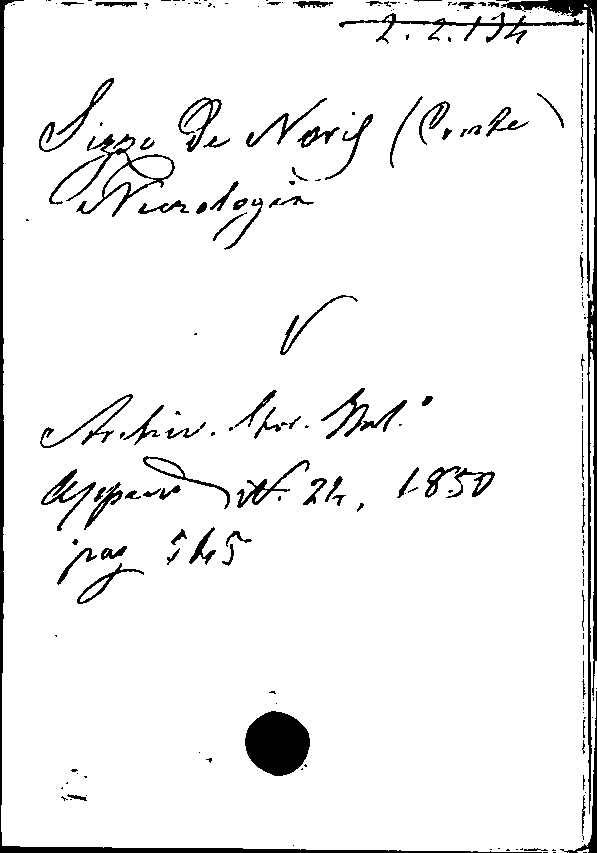 2.2.134
Sizzo De Noris (Conte)
Necrologia
V
Archiv. Stor. Ital.º
Append N. 24, 1850
pag 545